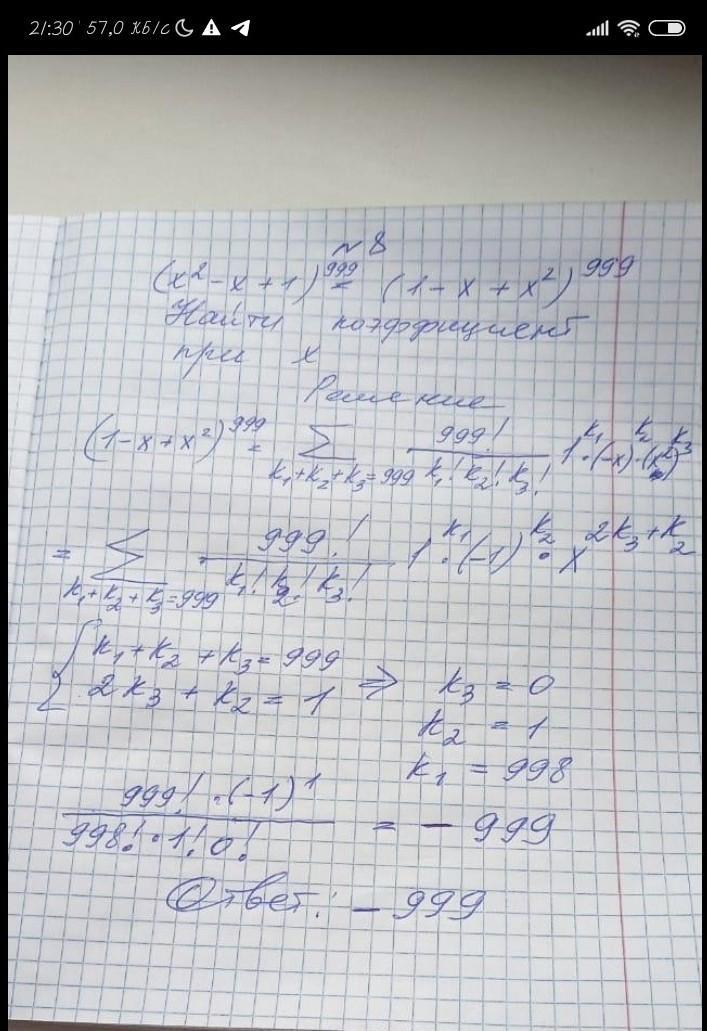 21:30 57,0 КБ/с
№8
(x² - x + 1)⁹⁹⁹ = (1 - x + x²)⁹⁹⁹
Найти коэффициент
при x
Решение
(1-x+x²)⁹⁹⁹ = Σ_{k₁+k₂+k₃=999} 999!/(k₁! k₂! k₃!) 1^{k₁}·(-x)^{k₂}·(x²)^{k₃}
= Σ_{k₁+k₂+k₃=999} 999!/(k₁! k₂! k₃!) 1^{k₁}·(-1)^{k₂}·x^{2k₃+k₂}
{ k₁+k₂+k₃=999
2k₃ + k₂ = 1 ⇒ k₃ = 0
k₂ = 1
k₁ = 998
999!·(-1)¹/(998!·1!0!) = - 999
Ответ: - 999